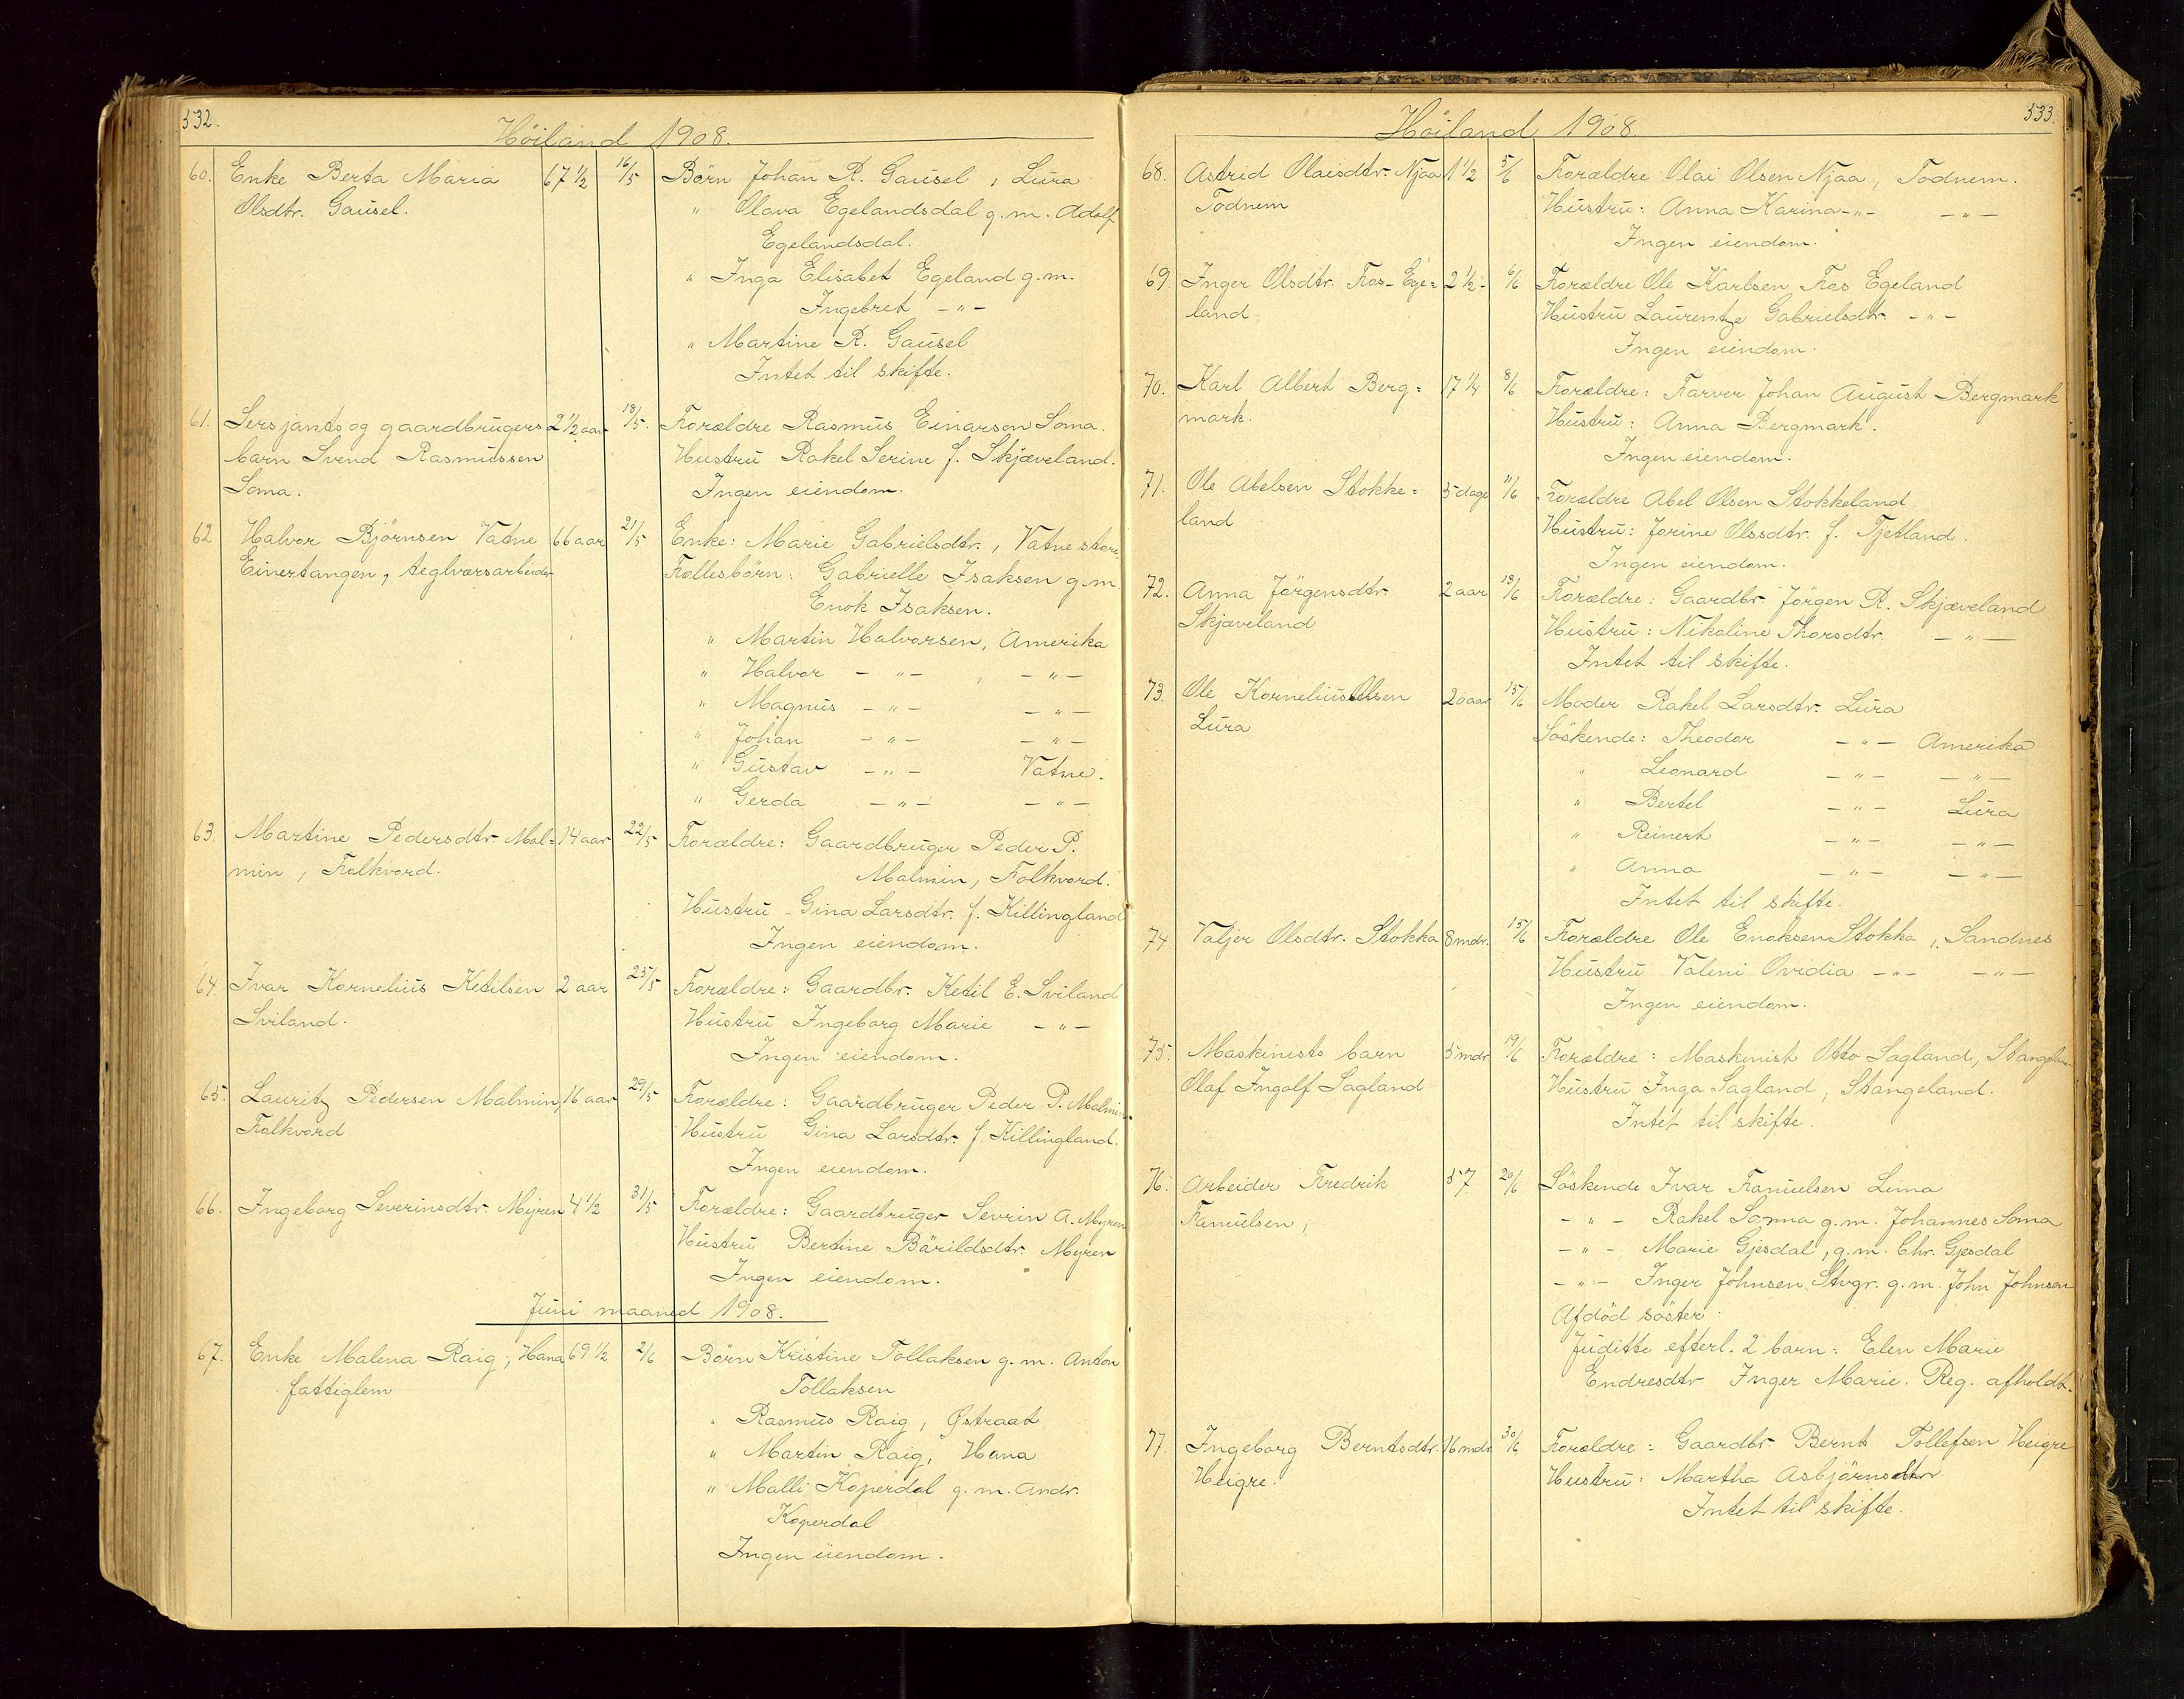 532.
Höiland 1908.
60. Enke Berta Maria 67 1/2 16/5 Børn Johan R. Gausel, Lura
Olsdtr. Gausel. " Olava Egelandsdal g.m. Adolf
Egelandsdal.
" Inga Elisabet Egeland g.m.
Ingebret -"-
" Martine R. Gausel
Intet til skifte.
61. Sersjants og gaardbrugers 2 1/2 aar 18/5. Forældre Rasmus Einarson Soma.
barn Svend Rasmussen Hustru Rakel Serine f. Skjæveland.
Soma. Ingen eiendom.
62 Halvor Björnsen Vatne 66 aar 21/5 Enke: Marie Gabrielsdtr., Vatne store
Einertangen, teglværsarbeider Fællesbörn: Gabrielle Isaksen g.m.
Enok Isaksen.
" Martin Halvorsen, Amerika
" Halvor -"- , -"-
" Magnus -"- -"-
" Johan -"- -"-
" Gustav -"- Vatne.
" Gerda -"- -"-
63. Martine Pedersdtr. Mal= 14 aar 22/5 Forældre: Gaardbruger Peder P.
min, Folkvord. Malmin, Folkvord.
Hustru - Gina Larsdtr. f. Killingland
Ingen eiendom.
64. Ivar Kornelius Ketilsen 2 aar 25/5 Forældre: Gaardbr. Ketil E. Sviland
Sviland. Hustru Ingeborg Marie -"-
Ingen eiendom.
65. Lauritz Pedersen Malmin, 16 aar 29/5 Forældre: Gaardbruger Peder P. Malmin.
Folkvord Hustru Gina Larsdtr. f. Killingland.
Ingen eiendom.
66. Ingeborg Severinsdtr. Myren 4 1/2 31/5 Forældre: Gaardbruger Sevrin A. Myren
Hustru Bertine Bårildsdtr. Myren
Ingen eiendom.
Juni maaned 1908.
67. Enke Malena Raig, Hana 69 1/2 2/6 Börn Kristine Tollaksen g.m. Anton
fattiglem Tollaksen
" Rasmus Raig, Østraat
" Martin Raig, Hana
" Malli Koperdal g.m. Andr.
Koperdal
Ingen eiendom.
533.
Höiland 1908
68. Astrid Olaisdtr. Njaa 1 1/2 5/6 Forældre Olai Olsen Njaa, Todnem.
Todnem Hustru: Anna Karina -"- -"-
Ingen eiendom.
69. Inger Olsdtr. Fos-Ege= 2 1/2- 6/6 Forældre Ole Karlsen Fos Egeland
land. Hustru Laurentze Gabrielsdtr. -"-
Ingen eiendom.
70. Karl Albert Berg= 17 1/4 8/6 Forældre: Farver Johan August Bergmark
mark. Hustru: Anna Bergmark.
Ingen eiendom.
71. Ole Abelsen Stokke= 5 dage 11/6 Forældre Abel Olsen Stokkeland
land Hustru: Jorine Olssdtr. f. Tjetland.
Ingen eiendom.
72. Anna Jörgensdtr. 2 aar 13/6 Forældre: Gaardbr. Jörgen R. Skjæveland
Skjæveland Hustru: Nikoline Thorsdtr. -"-
Intet til skifte.
73. Ole Kornelius Olsen 20 aar 15/6 Moder Rakel Larsdtr. Lura
Lura Söskende: Theodor -"- Amerika
" Leonard -"- -"-
" Bertel -"- Lura
" Reinert -"- -"-
" Anna -"- -"-
Intet til skifte.
74 Valjer Olsdtr. Stokka 8 mdr. 15/6 Forældre Ole Enoksen Stokka, Sandnes
Hustru Valeni Ovidia -"- -"-
Ingen eiendom.
75. Maskinists barn 5 mdr. 19/6 Forældre: Maskinist Otto Sagland, Stangeland
Olaf Ingolf Sagland Hustru Inga Sagland, Stangeland.
Intet til skifte.
76. Arbeider Fredrik 57 20/6 Söskende Ivar Famuelsen Lima
Famuelsen, -"- Rakel Somma g.m. Johannes Soma
-"- Marie Gjesdal, g.m. Chr. Gjesdal
-"- Inger Johnsen Stvgr. g.m. John Johnsen
Afdöd söster:
Juditte efterl. 2 barn: Elen Marie
Endresdtr Inger Marie. Reg. afholdt.
77. Ingeborg Berntsdtr. 16 mdr. 30/6 Forældre: Gaardbr. Bernt Tollefsen Heigre
Heigre. Hustru: Martha Asbjörnsdtr
Intet til skifte.